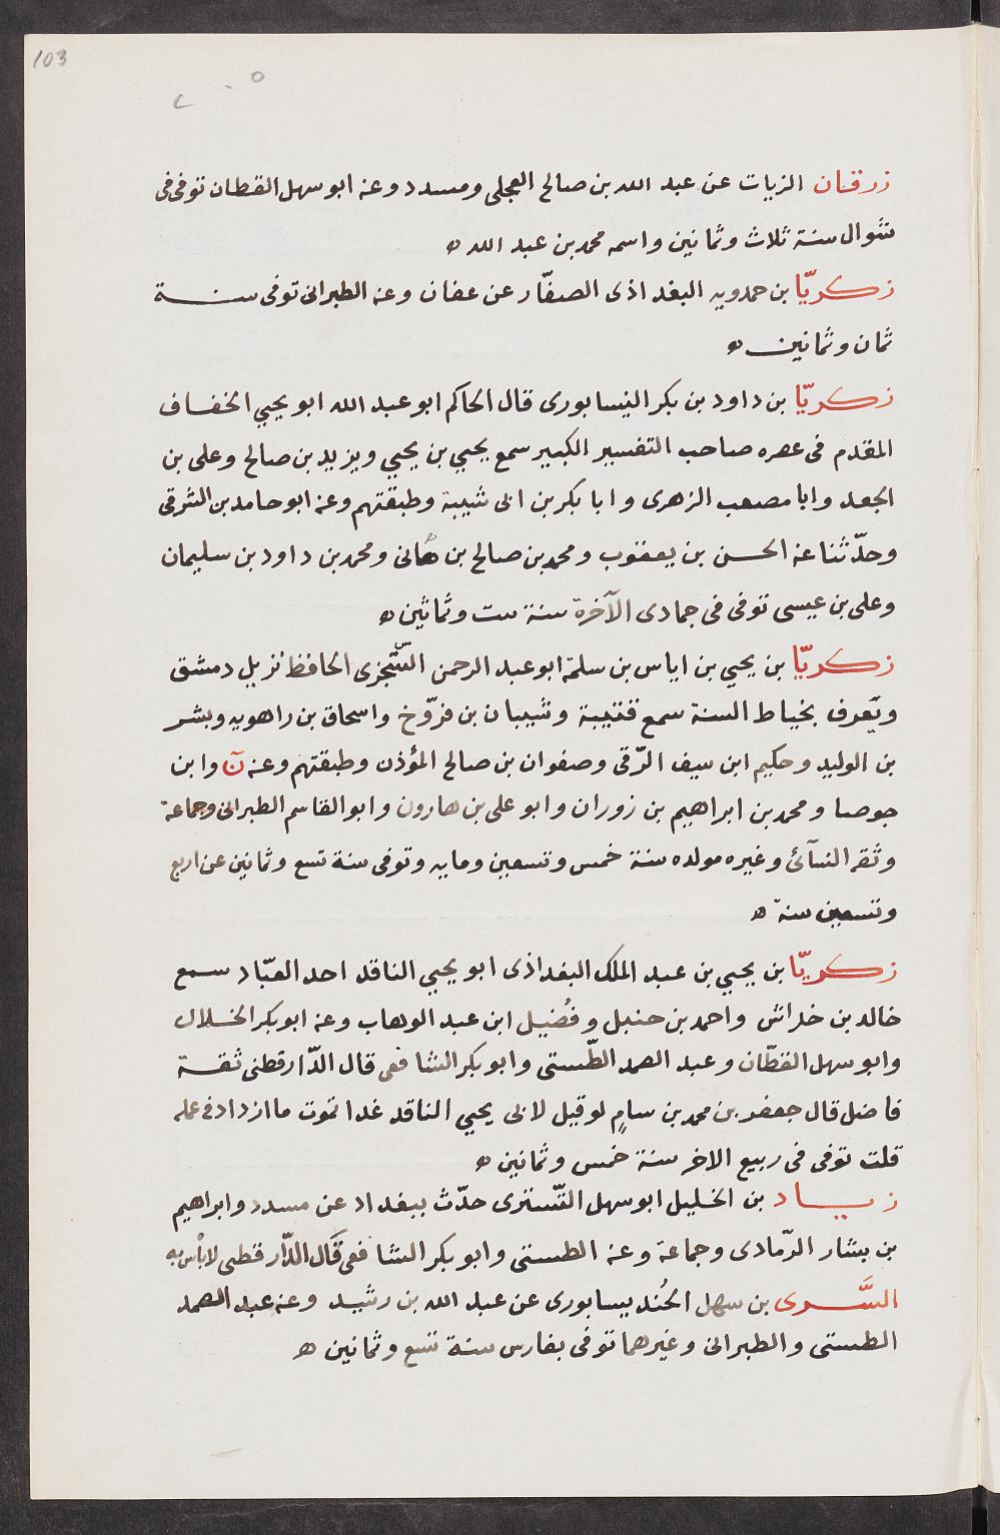 103
زرقان الزيات عن عبد الله بن صالح العجلى ومسدد وعنه ابو سهل القطان توفى فى
شوال سنة ثلاث وثمانين واسمه محمد بن عبد الله ه
زكريّا بن حمدويه البغداذى الصفّار عن عفان وعنه الطبرانى توفى سنة
ثمان وثمانين ه
زكريّا بن داود بن بكر النيسابورى قال الحاكم ابو عبد الله ابو يحيي الخفاف
المقدم فى عصره صاحب التفسير الكبير سمع يحيي بن يحيي ويزيد بن صالح وعلى بن
الجعد وابا مصعب الزهرى وابا بكر بن ابى شيبة وطبقتهم وعنه ابو حامد بن الشرقى
وحدّثنا عنه الحسن بن يعقوب ومحمد بن صالح بن هانى ومحمد بن داود بن سليمان
وعلى بن عيسى توفى فى جمادى الآخرة سنة ست وثمانين ه
زكريّا بن يحيي بن اياس بن سلمة ابو عبد الرحمن السّجزى الحافظ نزيل دمشق
ويَعرف بخياط السنة سمع قتيبة وشيبان بن فرّوخ واسحاق بن راهويه وبشر
بن الوليد وحكيم ابن سيف الرّقى وصفوان بن صالح المؤذن وطبقتهم وعنه نَ وابن
جوصا ومحمد بن ابراهيم بن زوران وابو على بن هارون وابو القاسم الطبرانى وجماعة
وثقه النسآئى وغيره مولده سنة خمس وتسعين ومايه وتوفى سنة تسع وثمانين عن اربع
وتسعين سنة ه
زكريّا بن يحيي بن عبد الملك البغداذى ابو يحيي الناقد احد العبّاد سمع
خالد بن خداش واحمد بن حنبل وفُضيل ابن عبد الوهاب وعنه ابو بكر الخلال
وابو سهل القطّان وعبد الصمد الطّستى وابو بكر الشافعى قال الدّارقطنى ثقة
فاضل قال جعفر بن محمد بن سامٍ لو قيل لابى يحيي الناقد غدا تموت ما ازداد فى عمله
قلت توفى فى ربيع الاخر سنة خمس وثمانين ه
زياد بن الخليل ابو سهل التّسترى حدّث ببغداد عن مسدد وابراهيم
بن بشار الرّمادى وجماعة وعنه الطستى وابو بكر الشافعى قَال الدّارقطنى لا بأس به
السَّرى بن سهل الجُنديسابورى عن عبد الله بن رشيد وعنه عبد الصمد
الطستى والطبرانى وغيرهما توفى بفارس سنة تسع وثمانين ه